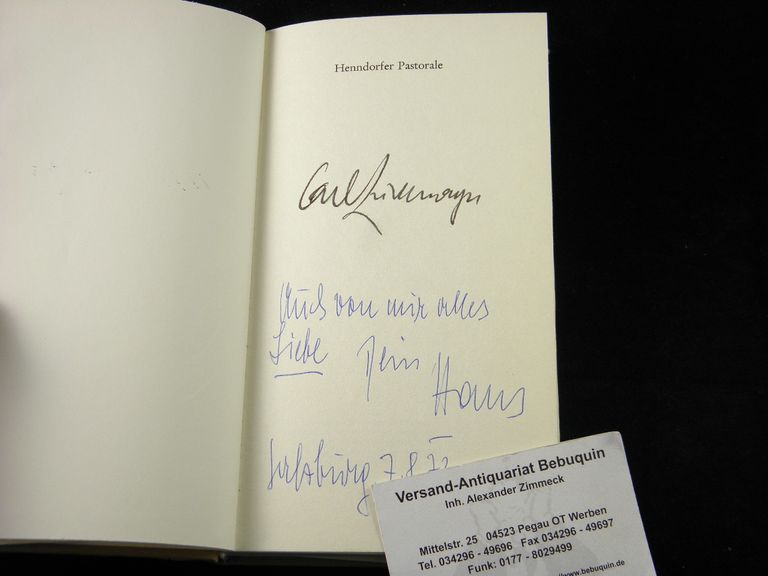 Henndorfer Pastorale
Carl Zuckmayer
Auch von mir alles
Liebe Dein
Hans
Salzburg 7.8.72
Versand-Antiquariat Bebuquin
Inh. Alexander Zimmeck
Mittelstr. 25 04523 Pegau OT Werben
Tel. 034296 - 49696 Fax 034296 - 49697
Funk: 0177 - 8029499
www.bebuquin.de